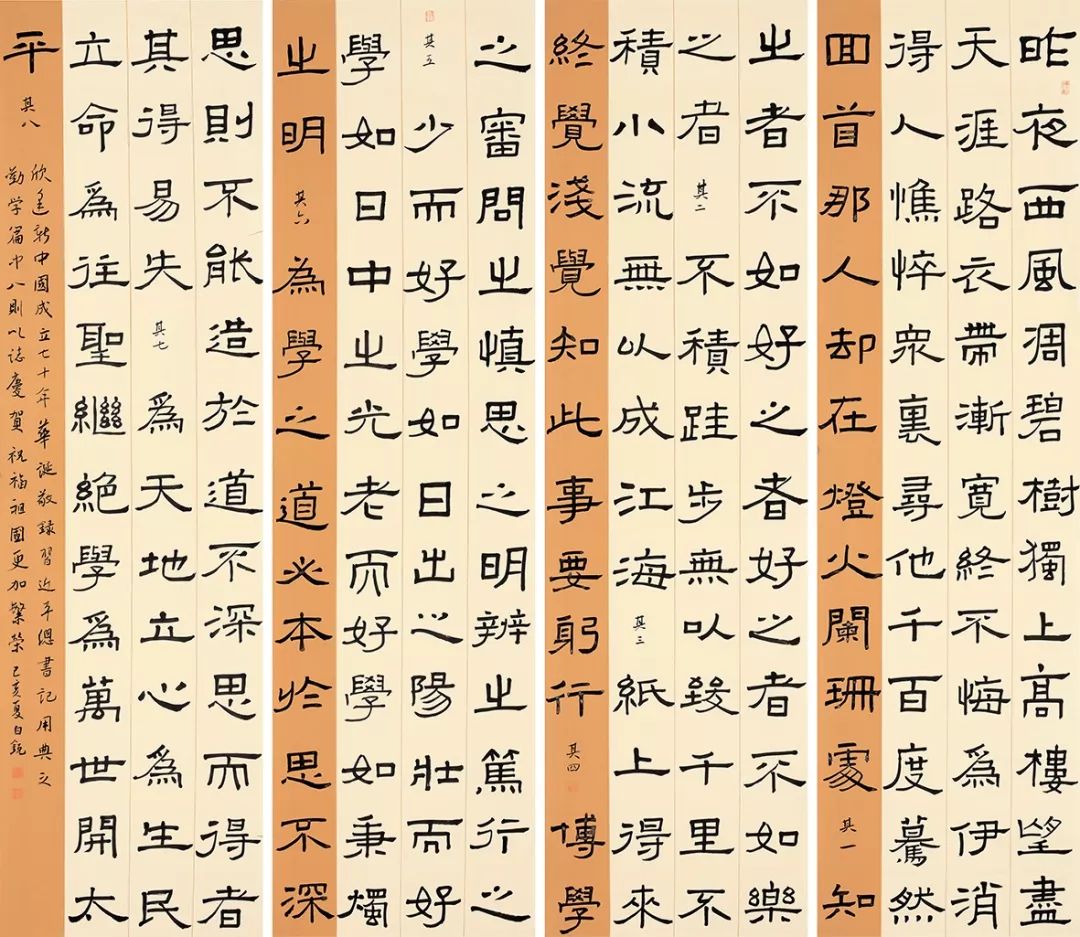 昨夜西風凋碧樹獨上高樓望盡
天涯路衣帶漸寬終不悔為伊消
得人憔悴眾裏尋他千百度驀然
回首那人却在燈火闌珊處 其一 知
之者不如好之者好之者不如樂
之者 其二 不積跬步無以致千里不
積小流無以成江海 其三 紙上得來
終覺淺覺知此事要躬行 其四 博學
之審問之慎思之明辨之篤行之
其五 少而好學如日出之陽壯而好
學如日中之光老而好學如秉燭
之明 其六 為學之道必本於思不深
思則不能造於道不深思而得者
其得易失 其七 為天地立心為生民
立命為往聖繼絕學為萬世開太
平 其八
欣逢新中國成立七十年華誕敬錄習近平總書記用典之
勤学篇中八則以誌慶賀祝福祖國更加繁榮 己亥夏白鋭